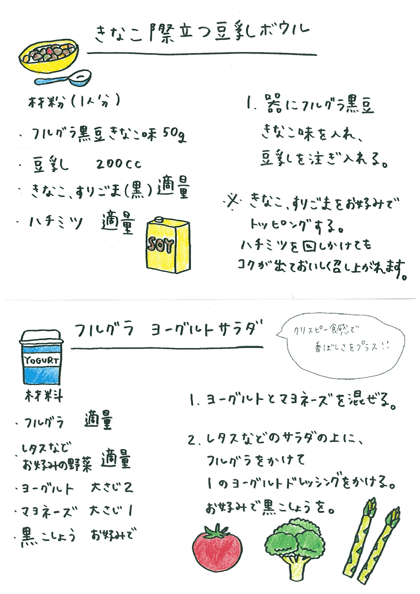 きなこ際立つ豆乳ボウル
材料(1人分)
・フルグラ黒豆きなこ味50g
・豆乳 200cc
・きなこ、すりごま(黒)適量
・ハチミツ 適量
SOY
1. 器にフルグラ黒豆
きなこ味を入れ、
豆乳を注ぎ入れる。
※きなこ、すりごまをお好みで
トッピングする。
ハチミツを回しかけても
コクが出ておいしく召し上がれます。
フルグラ ヨーグルトサラダ
クリスピー食感で
香ばしさをプラス!!
YOGURT
材料
・フルグラ 適量
・レタスなど
お好みの野菜 適量
・ヨーグルト 大さじ2
・マヨネーズ 大さじ1
・黒こしょう お好みで
1. ヨーグルトとマヨネーズを混ぜる。
2. レタスなどのサラダの上に、
フルグラをかけて
1のヨーグルトドレッシングをかける。
お好みで黒こしょうを。